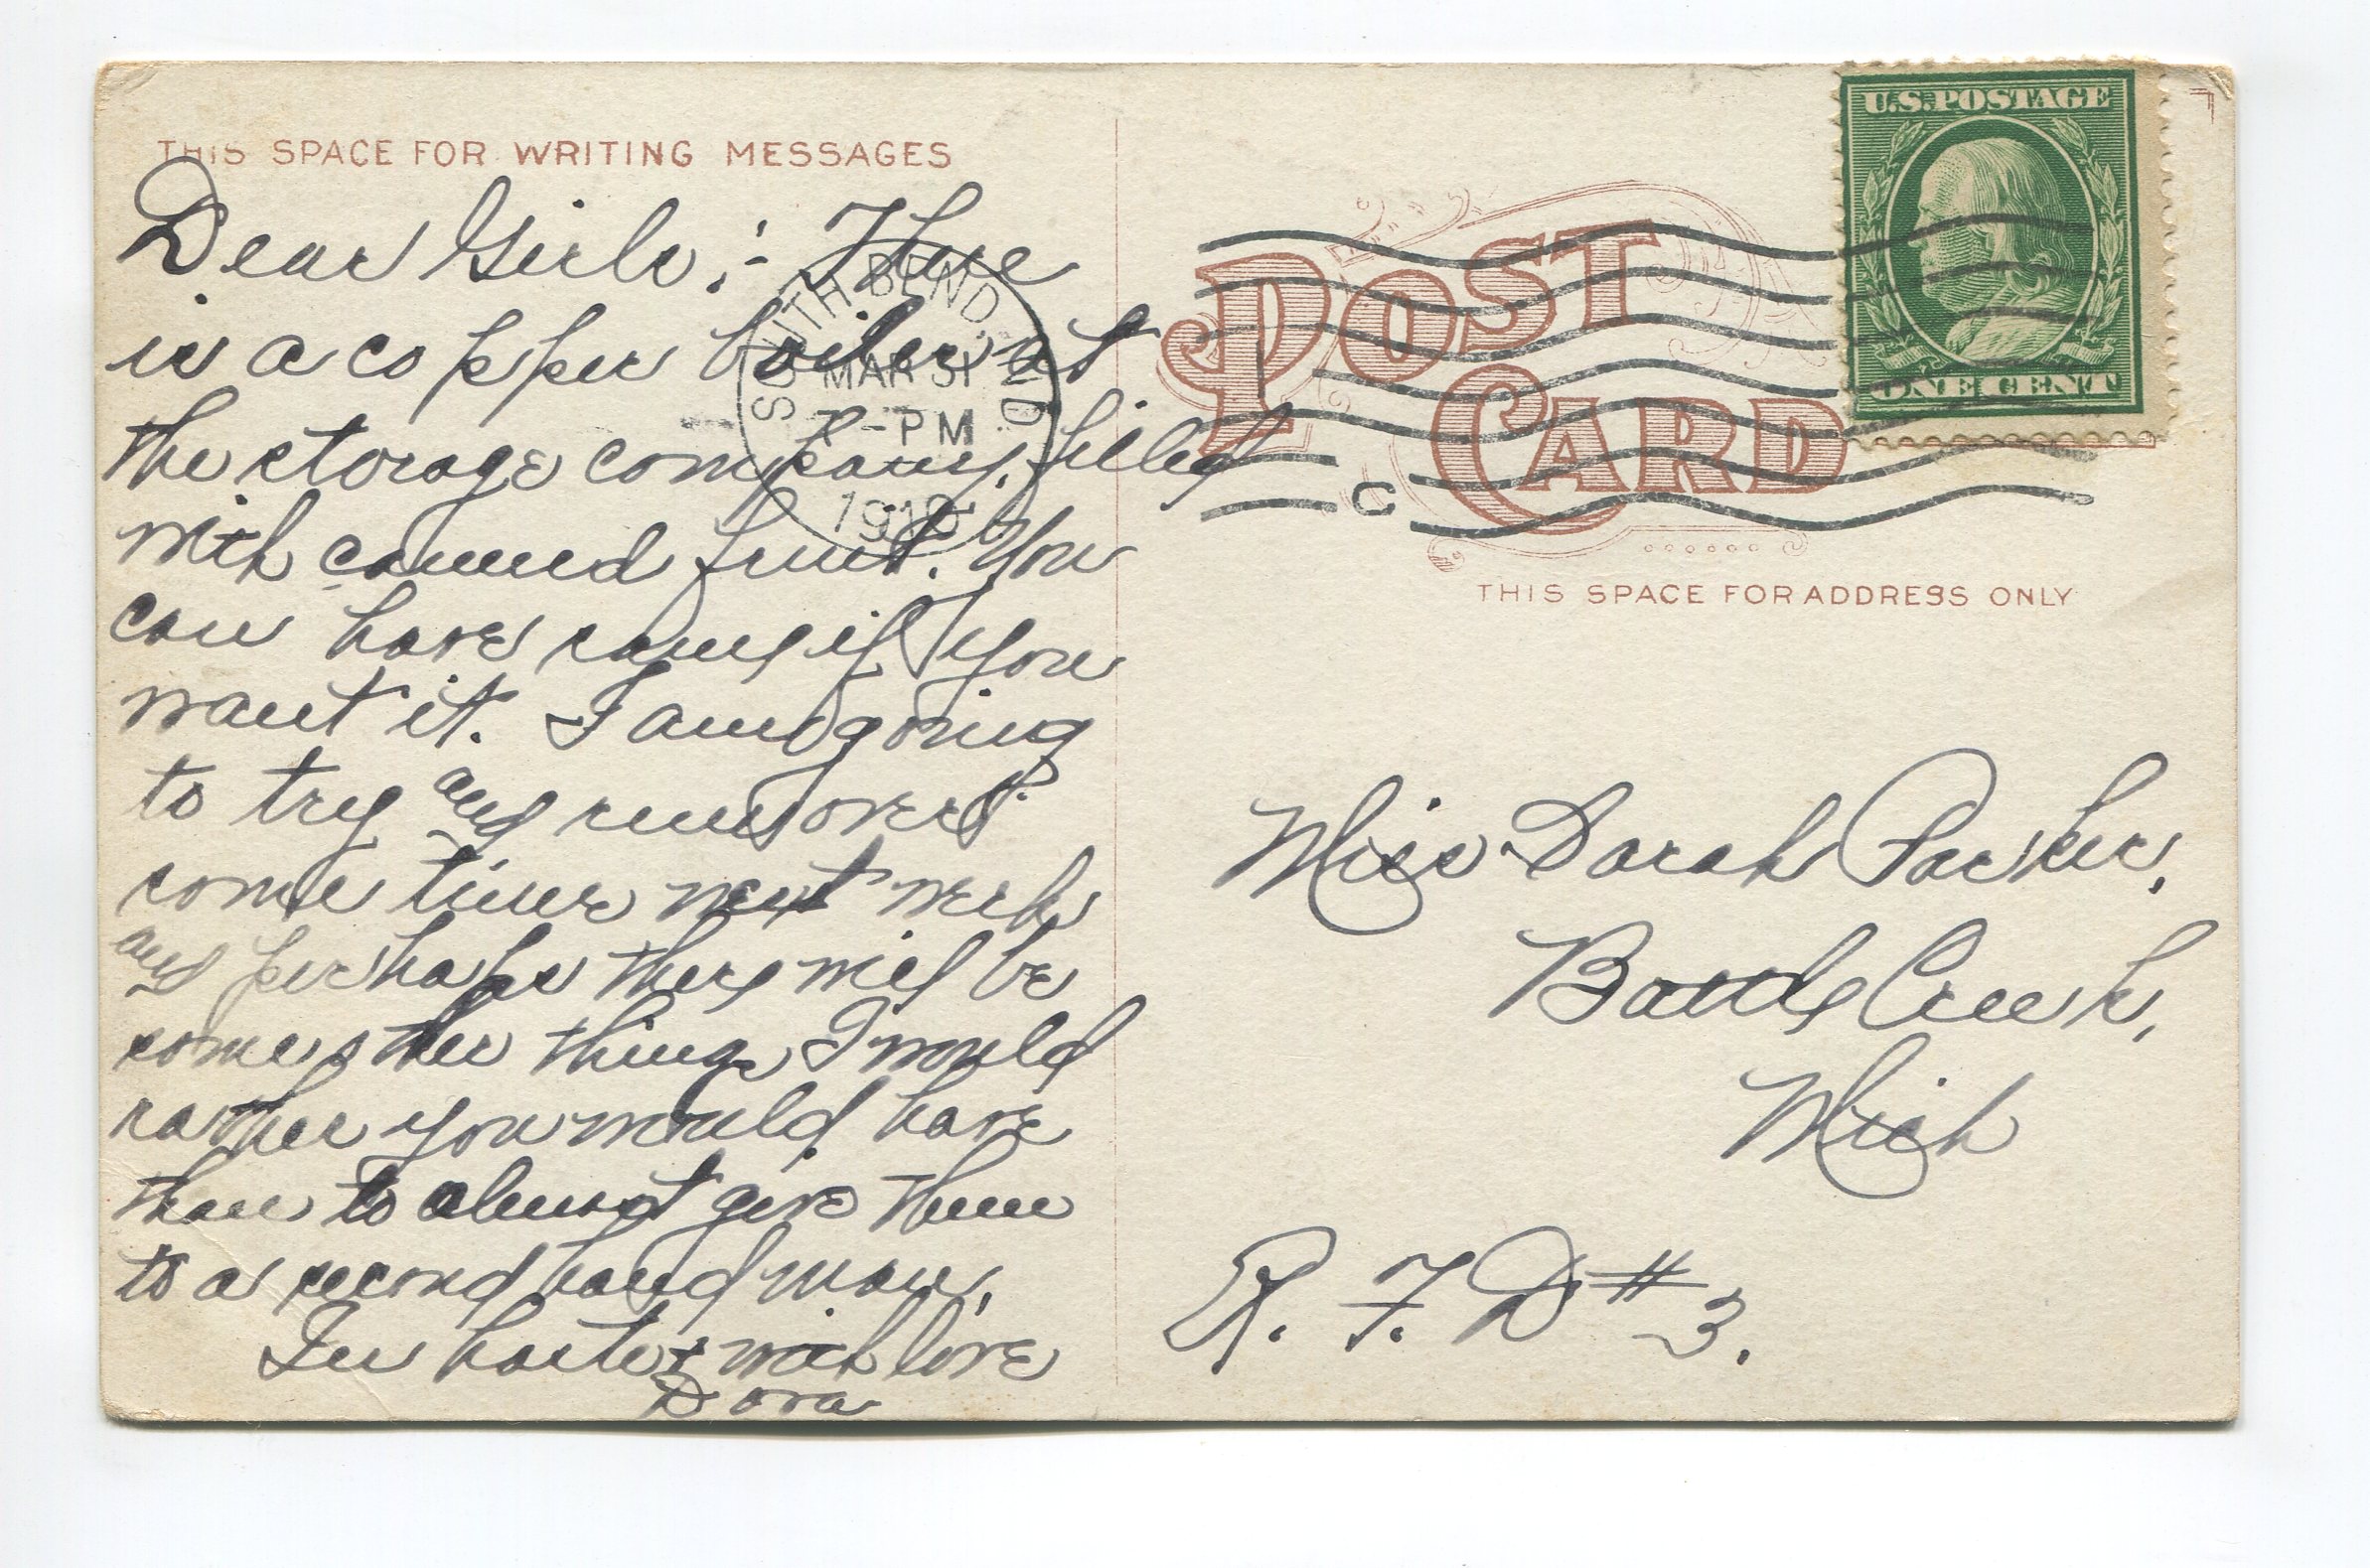 THIS SPACE FOR WRITING MESSAGES
Dear Girls;- There
is a copper boiler at
the storage company, filled
with canned fruit. You
can have same if you
want it. I am going
to try and run over
some time next week
and perhaps there will be
some other things I would
rather you would have
than to almost give them
to a second hand man.
In haste & with love
Dora
SOUTH BEND, IND.
MAR 31
7-PM
1910
U.S. POSTAGE
ONE CENT
POST
CARD
C
THIS SPACE FOR ADDRESS ONLY
Miss Sarah Parker,
Battle Creek,
Mich
R. F. D # 3.